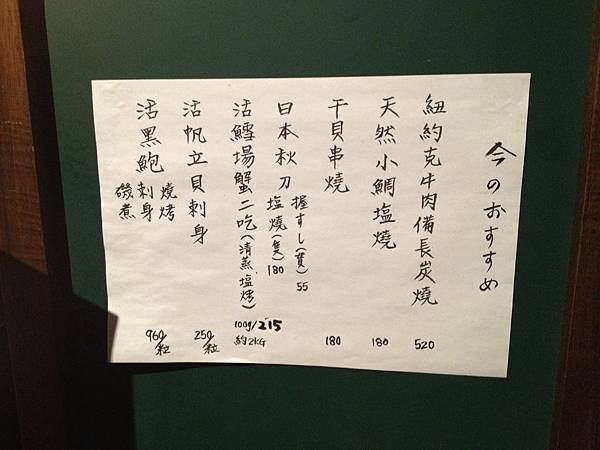 今のおすすめ
紐約克牛肉備長炭燒 520
天然小鯛塩燒 180
干貝串燒 180
日本秋刀
握すし(貫) 55
塩燒(隻) 180
活鱈場蟹二吃(清蒸、塩烤) 100g/215
約2KG
活帆立貝刺身 250/粒
活黑鮑
燒烤
刺身
磯煮
960/粒